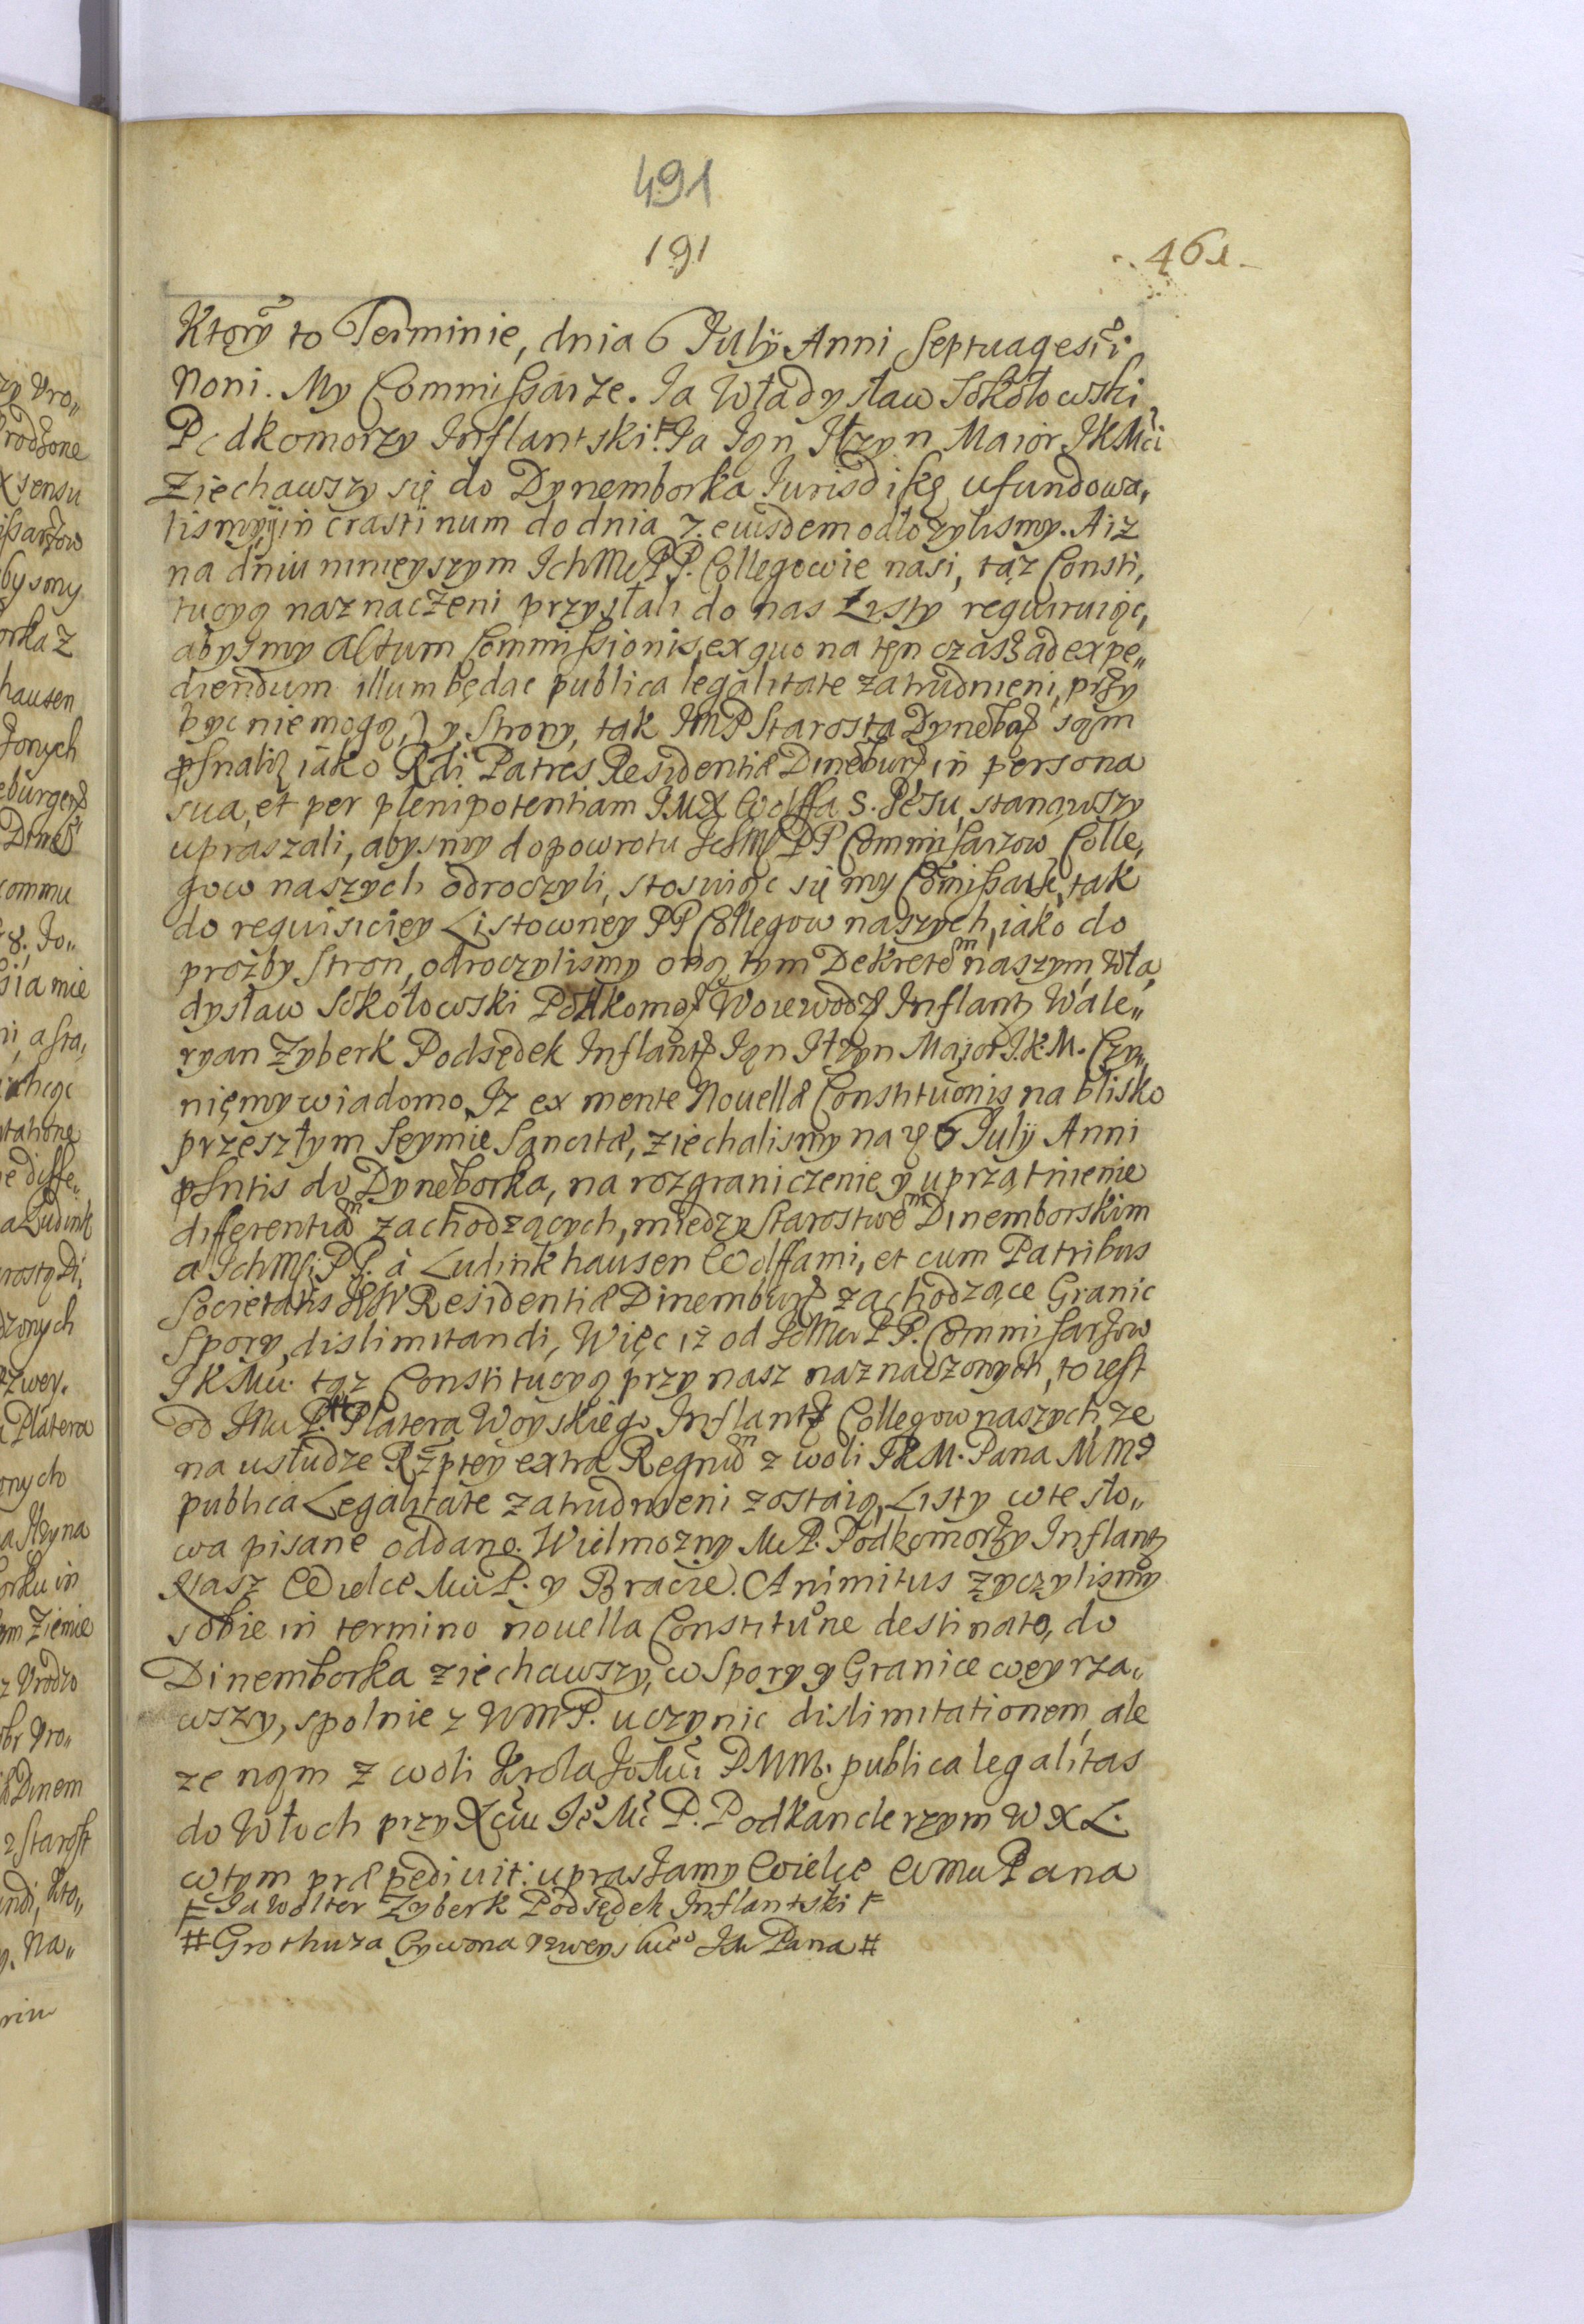 491
191
461
Ktorỹ to Terminie, dnia 6 Julÿ Anni septuagesĩi
Noni. My Commissarze. Ja Władysław Sokołowski
Podkomorzy Inflantski. Ja Jgn Jłzyn Maior JKMći
Ziechawszy się do Dynemborka Jurisdikę ufundowa,
lismy, y in crastinum do dnia 7. euisdem odłozylismy. A iz
na dniu ninieyszym IchMć PP. Collegowie nasi, tąz Consti,
tucyą naznaczeni przysłali do nas Listy requiruiąc,
abysmy Actum Commissionis, ex quo na ten czas ad expe„
diendum illum będąc publica legalitate zatrudnieni, przy
być nie mogą, y Strony, tak JMP Starosta Dyneb sąm
psnaliz iako Rdi Patres Residentiæ Dineburg in persona
sua, et per plenipotentiam JMX Wolffa S. Jesu, stanąwszy
upraszali, abysmy do powrotu IchMć PP Commissarzow Colle,
gow naszych odroczyli, stosuiąc się my Comissarze, tak
do requisiciey Listowney PP Collegow naszych, iako do
prozby stron, odroczylismy oną tym Dekretem naszym, Wła,
dysław Sokołowski Podkomo Woiewodz Inflant Wale„
ryan Zyberk Podsędek Inflant Jgn Jłzyn Major J.K.M. Czy„
nięmy wiadomo, Iz ex mente Nouellæ Constituonis na blisko
przeszłym Seymie Sancitæ, ziechalismy na 6 Julÿ Anni
psntis do Dyneborka, na rozgraniczenie y uprzątnienie
differentium zachodzących, miedzy Starostwem Dinemborskim
a IchMć PP. à Ludinkhausen Wolffami, et cum Patribus
Societatis Residentiæ Dinemburg zachodzące Granic
Spory, dislimitandi, Więc iz od IchMć PP. Commissarzow
JKMci tąz Constitucyą przy nasz naznaczonych, to iest
od JMci P. # Platera Woyskiego Inflant Collegow naszych, ze
na usłudze Rzptey extra Regnum z woli JKM. Pana MMo
publica Legalitate zatrudnieni zostaią, Listy w te sło„
wa pisane oddano. Wielmozny Mci P. Podkomorzy Inflant
Nasz Wielce Mci P. y Bracie. Animitus zyczylismy
sobie in termino nouella Constituone destinato, do
Dinemborka ziechawszy, w Spory y Granice weyrza„
wszy, spolnie z WMP. uczynic dislimitationem, ale
ze nąm z woli Krola JoMći P.MM. publica legalitas
do Włoch przy Xciu JeoMć P. Podkanclerzym WXL.
w tym præpediuit: upraszamy Wielce WMci Pana
F Ja Wolter Zyberk Podsędek Inflantski F
# Grothuza Cywona Jm Pana #